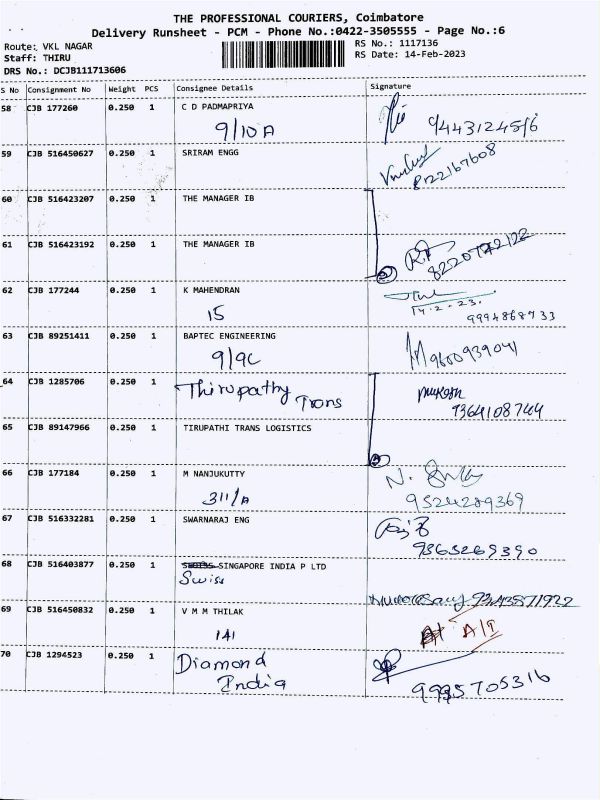 THE PROFESSIONAL COURIERS, Coimbatore
Delivery Runsheet - PCM - Phone No.:0422-3505555 - Page No.:6
Route: VKL NAGAR
Staff: THIRU
DRS No.: DCJB111713606
RS No.: 1117136
RS Date: 14-Feb-2023
S No Consignment No Weight PCS Consignee Details Signature
58 CJB 177260 0.250 1 C D PADMAPRIYA
9/10A
59 CJB 516450627 0.250 1 SRIRAM ENGG
8122167608
60 CJB 516423207 0.250 1 THE MANAGER IB
61 CJB 516423192 0.250 1 THE MANAGER IB
2
62 CJB 177244 0.250 1 K MAHENDRAN
15
14.2.23.
63 CJB 89251411 0.250 1 BAPTEC ENGINEERING
9/9C
9600939041
64 CJB 1285706 0.250 1 Thirupathy
Trans
9364108744
65 CJB 89147966 0.250 1 TIRUPATHI TRANS LOGISTICS
66 CJB 177184 0.250 1 M NANJUKUTTY
311/A
9524289369
67 CJB 516332281 0.250 1 SWARNARAJ ENG
68 CJB 516403877 0.250 1 SINGAPORE INDIA P LTD
Swiss
69 CJB 516450832 0.250 1 V M M THILAK
141
70 CJB 1294523 0.250 1 Diamond
India